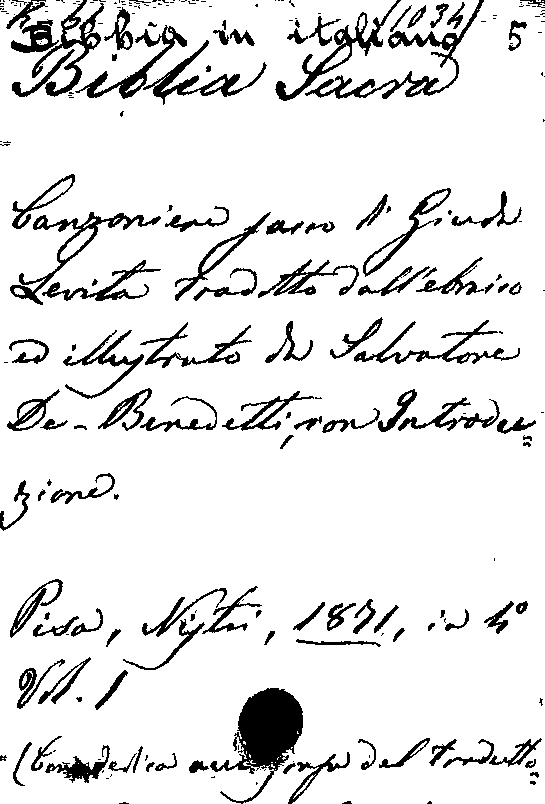 Bibbia in italiano 5
Biblia Sacra
Canzoniere sacro di Giuda
Levita tradotto dall'ebraico
ed illustrato da Salvatore
De-Benedetti, con Introdu=
zione.
Pisa, Nistri, 1871, in 4º
Vol. 1
(Con dedica del tradutto=